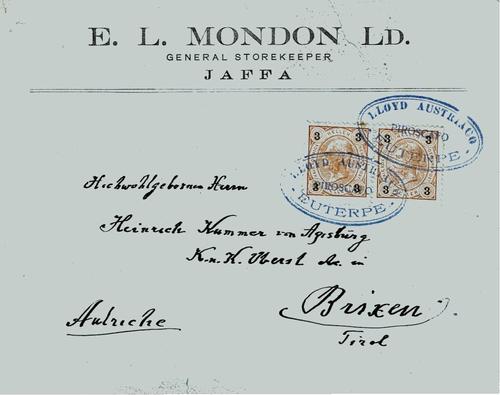 E. L. MONDON LD.
GENERAL STOREKEEPER
JAFFA
LLOYD AUSTRIACO
PIROSCAFO
EUTERPE
3 3 3 3
LLOYD AUSTRIACO
PIROSCAFO
EUTERPE
3 3 3 3
Hochwohlgeboren Herrn
Heinrich Kummer von
K. u. K. Oberst in
Brixen
Tirol
Autriche